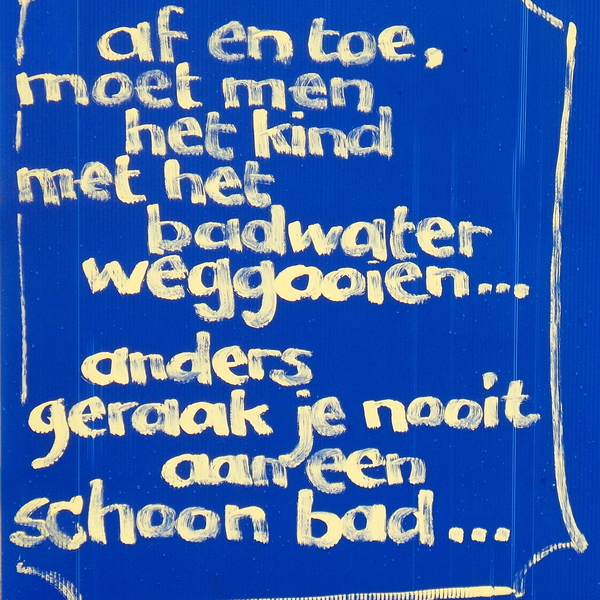 af en toe,
moet men
het kind
met het
badwater
weggaoien...
anders
geraak je nooit
aan een
schoon bad...